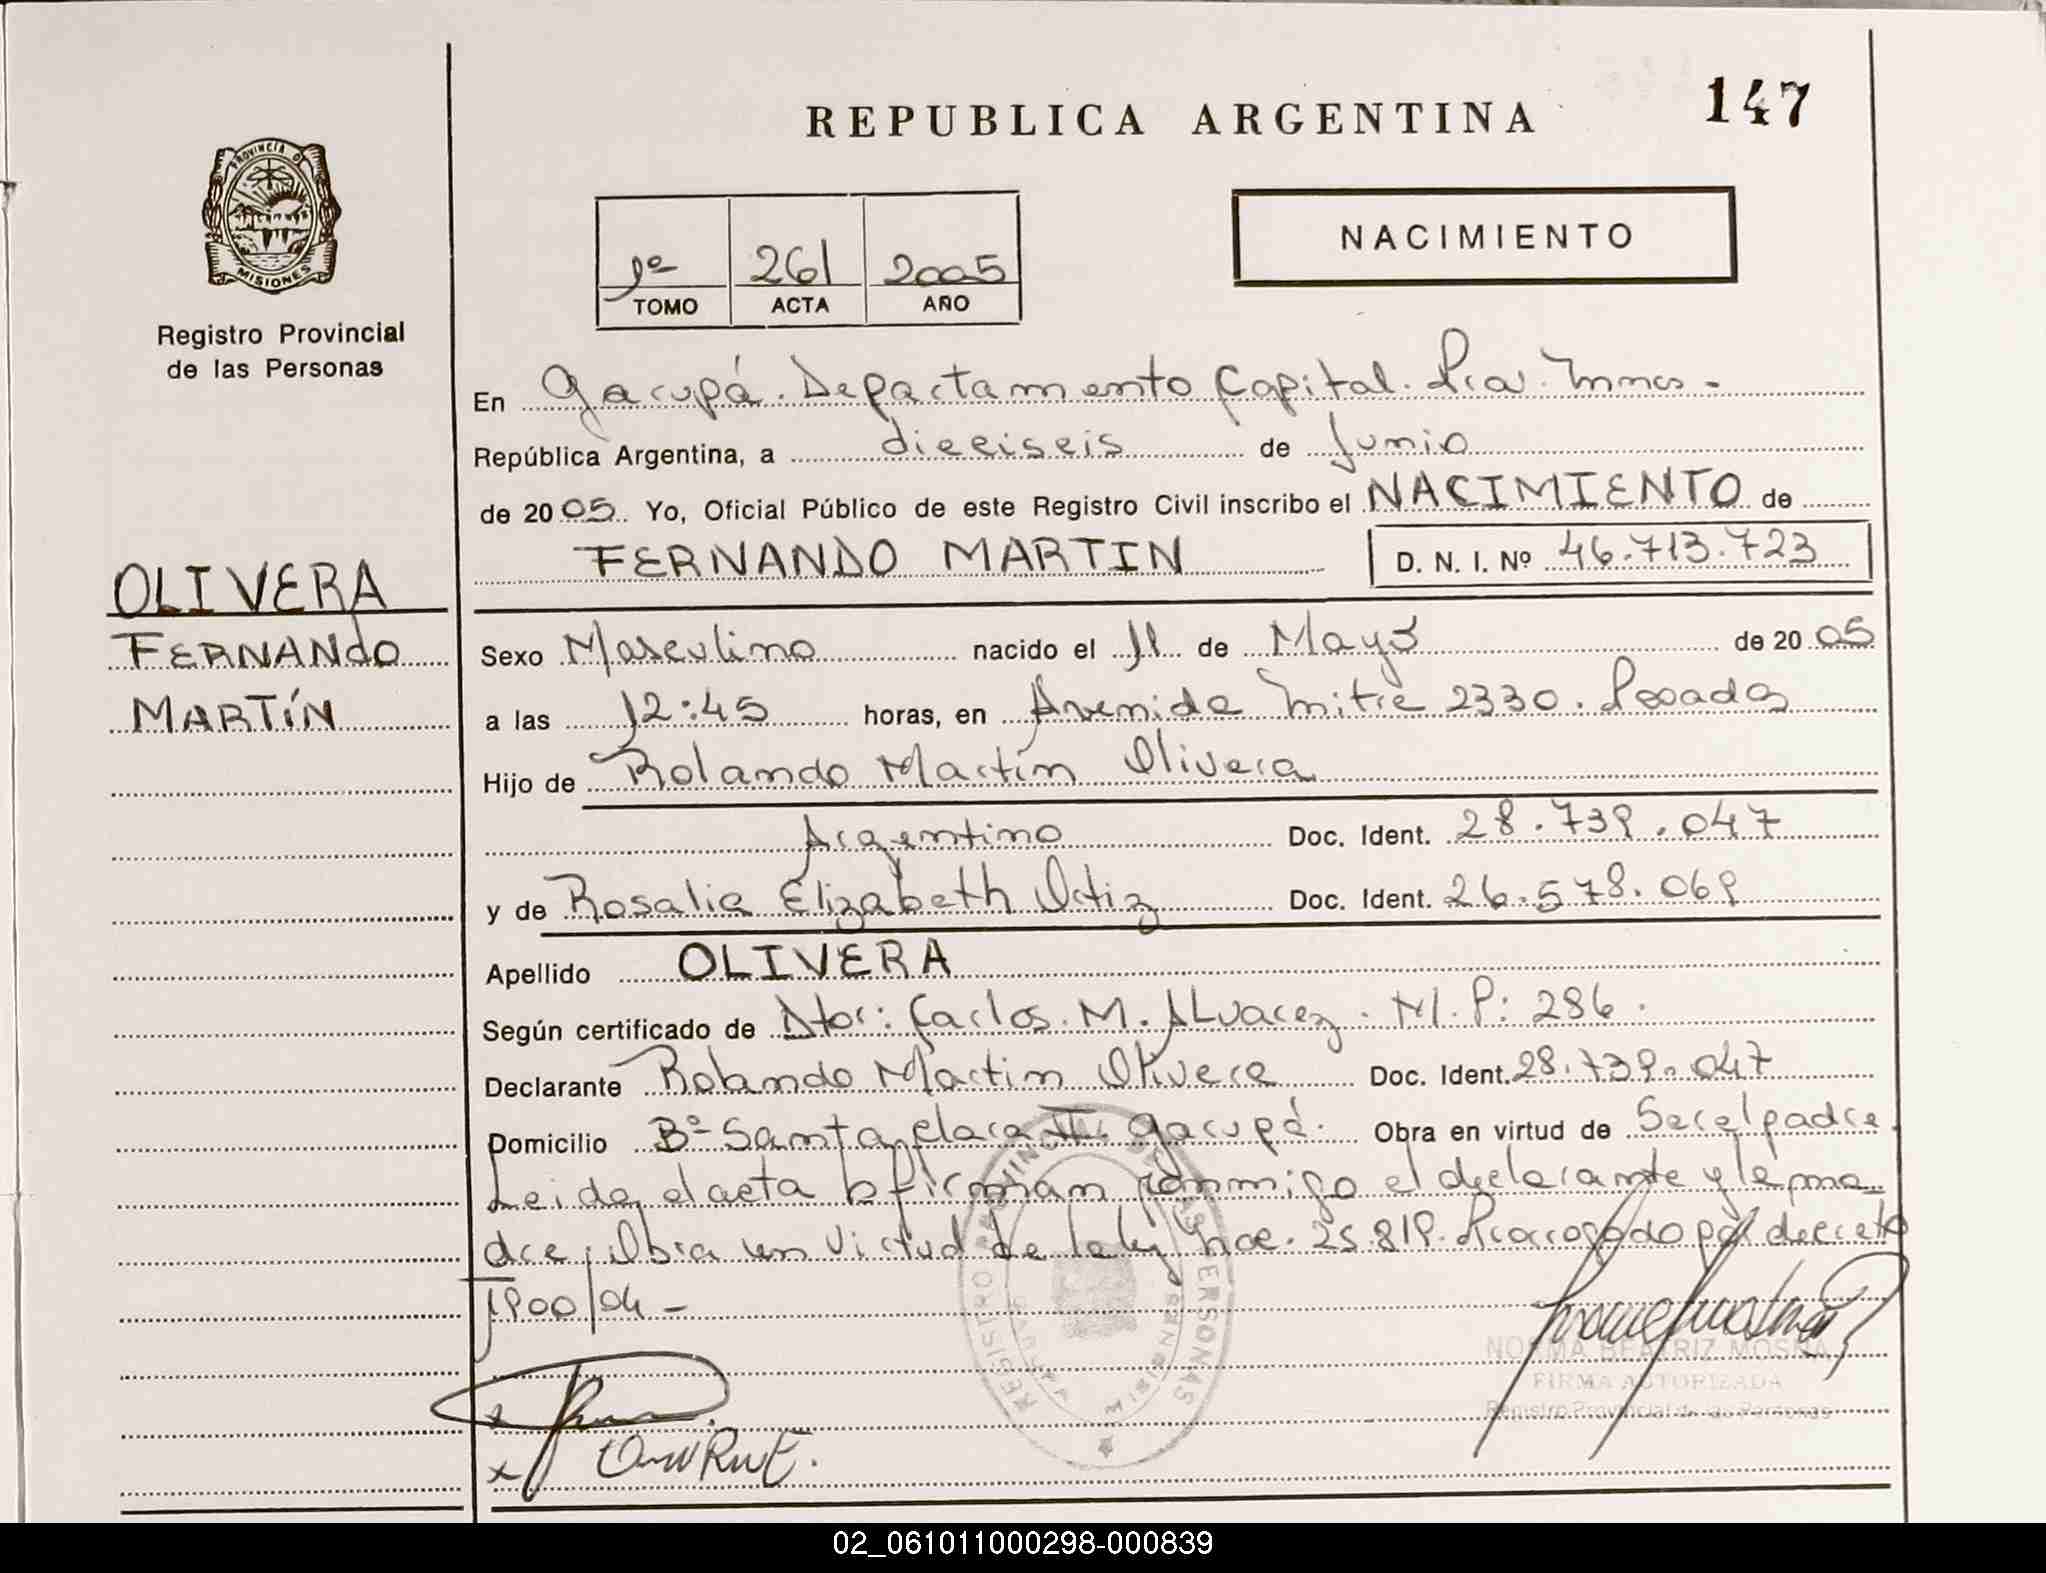 REPUBLICA ARGENTINA
147
PROVINCIA DE
MISIONES
Registro Provincial
de las Personas
1º 261 2005
TOMO ACTA AÑO
NACIMIENTO
En Garupá. Departamento Capital. Pcia. Mnes -
República Argentina, a dieciseis de Junio
de 2005. Yo, Oficial Público de este Registro Civil inscribo el NACIMIENTO de
FERNANDO MARTIN D. N. I. Nº 46.713.723
OLIVERA
FERNANDO
MARTÍN
Sexo Masculino nacido el 11 de Mayo de 2005
a las 12:45 horas, en Avenida Mitre 2330. Posadas
Hijo de Rolando Martín Olivera
Argentino Doc. Ident. 28.739.047
y de Rosalia Elizabeth Ortiz Doc. Ident. 26.578.069
Apellido OLIVERA
Según certificado de Dtor: Carlos. M. Alvarez. M.P: 286.
Declarante Rolando Martin Olivera Doc. Ident. 28.739.047
Domicilio Bº Santa Clara II. Garupá. Obra en virtud de Ser el padre.
Leida el acta firman conmigo el declarante y la ma-
dre. Obra en virtud de la ley Nac. 25.819. Prorrogado por decreto
1900/04 -
REGISTRO PROVINCIAL DE LAS PERSONAS
GARUPA MISIONES
NORMA BEATRIZ MOSNA
FIRMA AUTORIZADA
Registro Provincial de las Personas
x
x
02_061011000298-000839